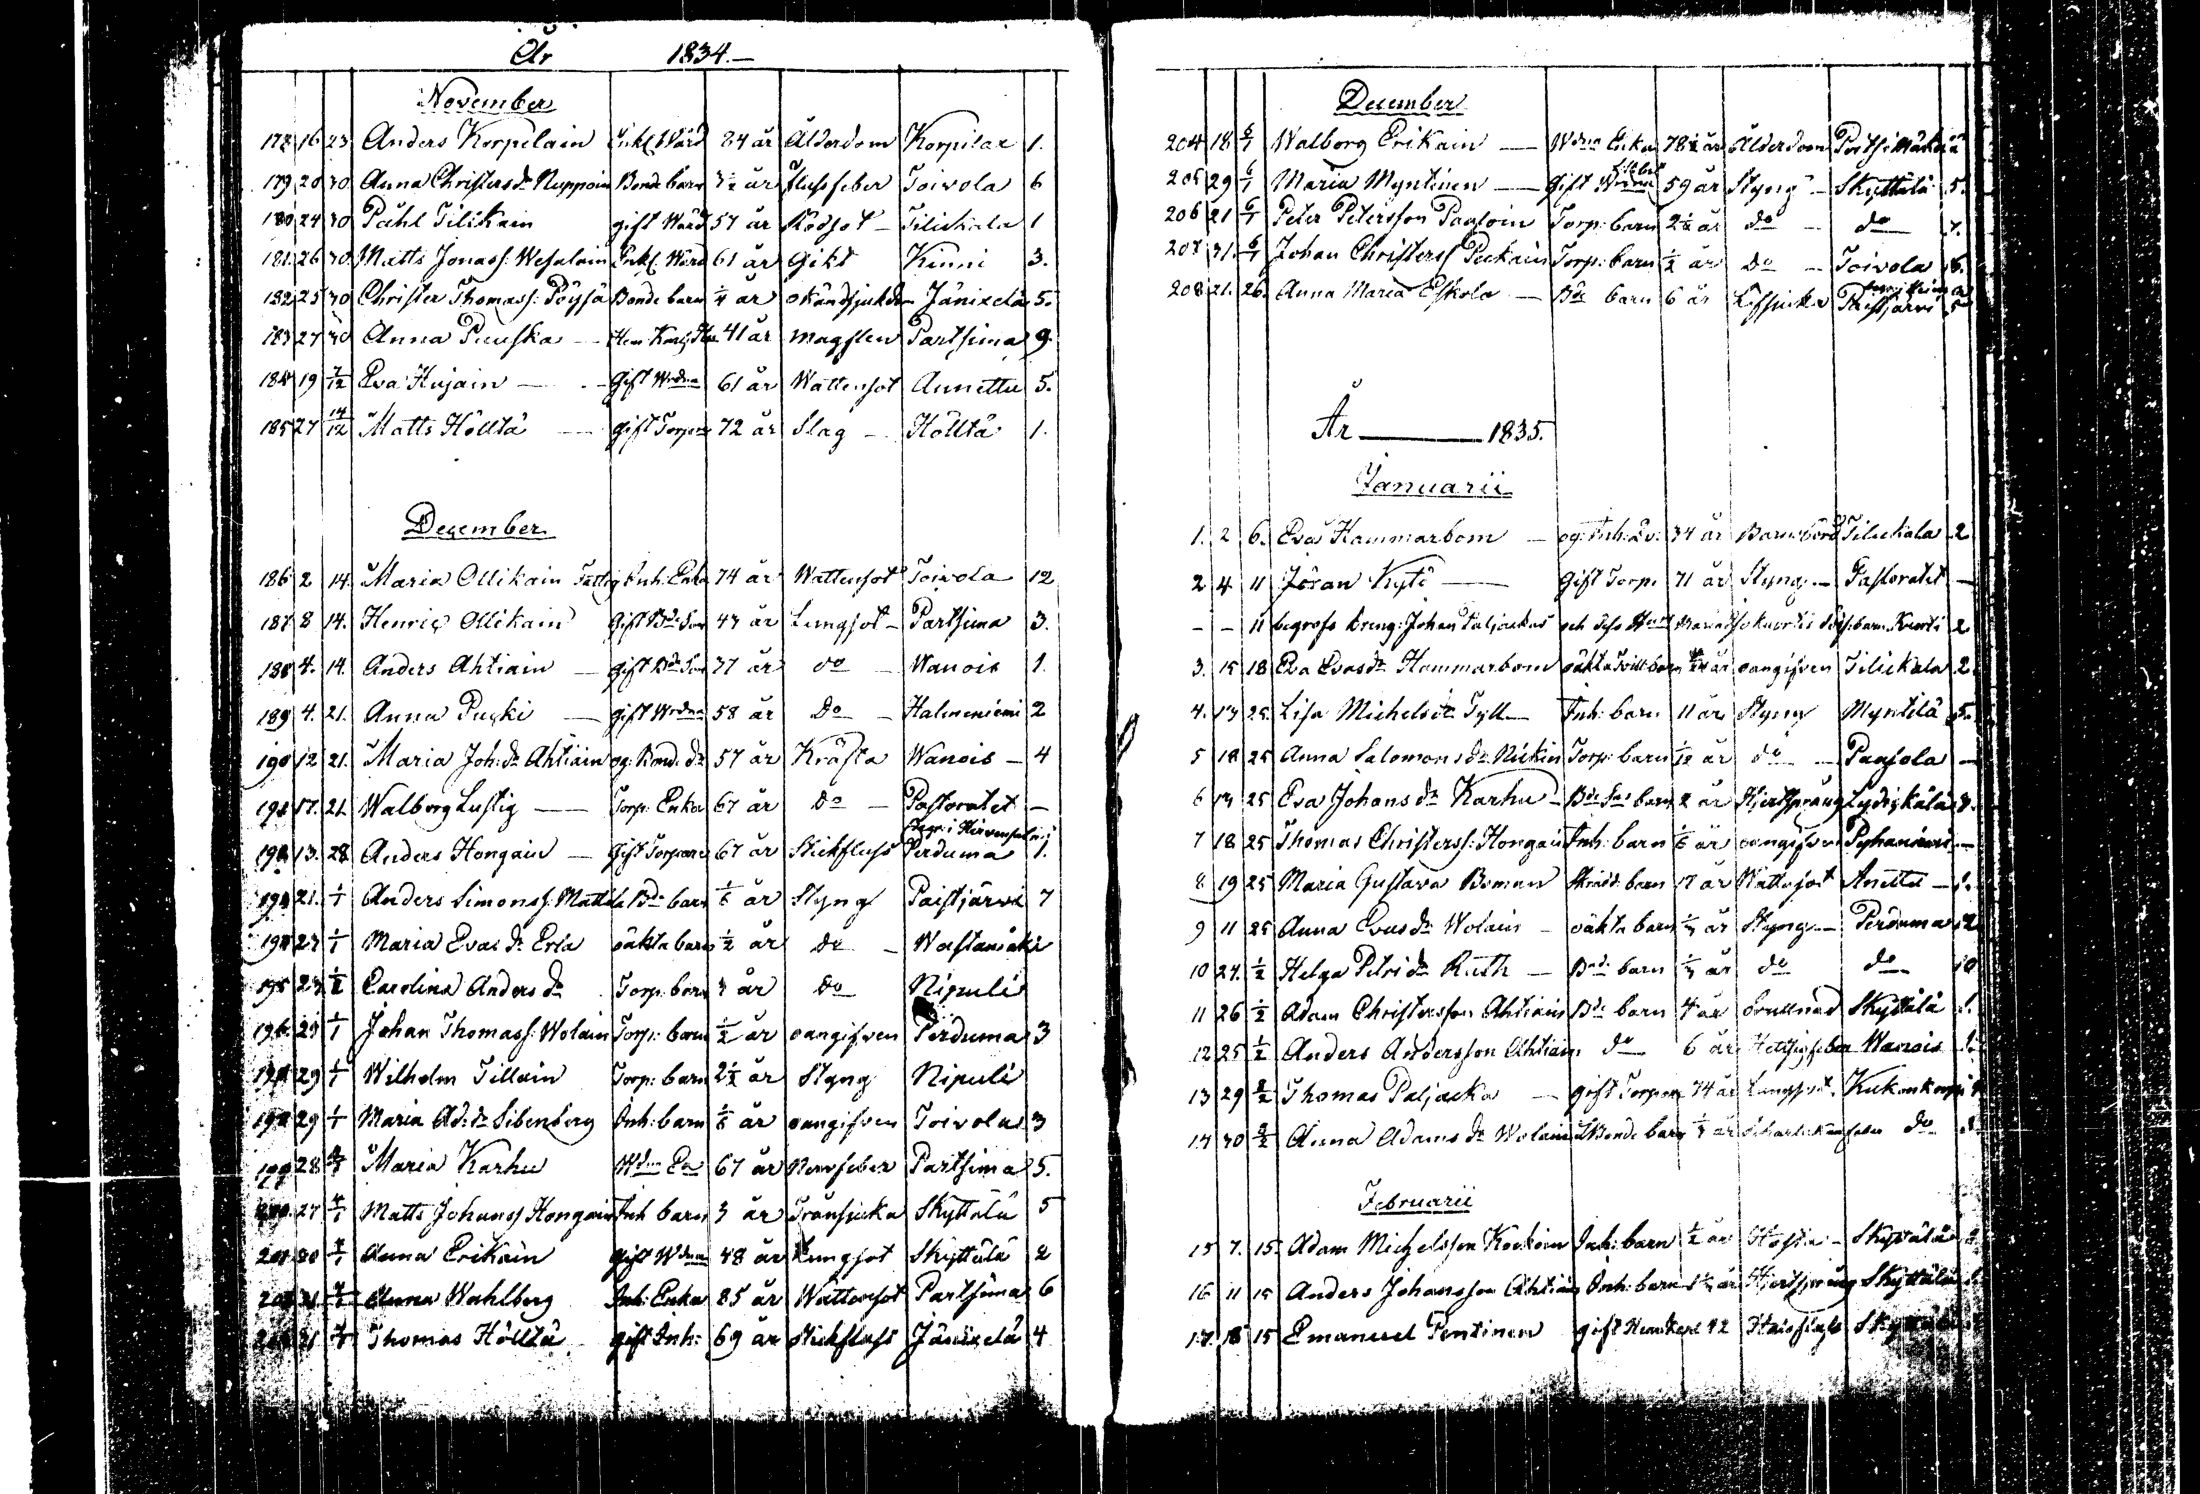 År 1834.—
November
178 16 23 Anders Korpelain Enkl. Wärd 84 år Ålderdom Korpilax 1.
179 20 30 Anna Christersdr Nuppoin Bonde barn 3½ år flussfeber Toivola 6
180 24 30 Påhl Tilikain gift Wärd 57 år Rödsot — Tilickala 1
181. 26 30 Matts Jonass: Wesalain Enkl. Wärd 61 år Gikt Kinni 3.
182 25 30 Christer Thomass: Pöysä Bonde barn ¼ år okänd sjukdm Jänixelä 5.
183 27 30 Anna Puuska — 41 år magplen Partsima 9.
184 19 7/12 Eva Hujain — Gift Wrdna 61 år Wattensot Annettu 5.
185 27 14/12 Matts Hölltä — gift Torpare 72 år Slag — Hölltä 1.
December
186 2 14. Maria Ollikain Fattig Inh: Enka 74 år Wattensot Toivola 12
187 8 14. Henric Ollikain Gift Bde Son 43 år Lungsot — Partsima 3.
188 4. 14. Anders Ahtiain — gift Bde Son 37 år do — Wanois 1.
189 4. 21. Anna Pucki — gift Wrdna 58 år Do — Halmeniemi 2
190 12 21. Maria Joh: dr Ahtiain og: Bond. dr 57 år Kräfta Wanois — 4
191 17. 21. Walborg Lustig — Torp: Enka 67 år Do — Pastoratet —
192 13. 28 Anders Hongain — Gift Torpare 67 år Stickfluss Perduma 1.
193 21. 1/1 Anders Simonss: Mattila Bde barn år Styng Paistjärvi 7
194 23 1/1 Maria Evas dr Erla oäkta barn ½ år do — Wastamäki
195 23 Carolina Anders dr Torp: barn 3 år do Nipuli
196. 29 1/1 Johan Thomass: Wolain Torp: barn ½ år oangifven Perduma 3
197 29 1/1 Wilhelm Tillain Torp: barn 2½ år Styng Nipuli
198 29 1/1 Maria Ad: dr Sibenberg Inh: barn år oangifven Toivola 3
199 28 Maria Karhu Wdna Ea 67 år Nervfeber Partsima 5.
200. 27 Matts Johanss Hongain Inh barn 3 år Trånsjuka Skyttälä 5
201 30 Anna Erikain gift Wdna 48 år Lungsot Skyttälä 2
202 31 Anna Wahlberg Inh: Enka 85 år Wattensot Partsima 6
203 31 Thomas Hölltä gift Inh: 69 år Stickfluss Jänixelä 4
December
204 18 6/1 Walborg Erikain — Wdna Enka 78½ år Ålderdom
205 29 6/1 Maria Myntinen — Gift 59 år Styng — Skyttälä 5.
206 21 6/1 Peter Petersson Pasoin Torp: barn 2½ år do — do 7.
207 31. 6/1 Johan Christerss Puckain Torp: barn ½ år Do — Toivola 6.
208 21. 26. Anna Maria Eskola — Bde barn 6 år Paistjärvi 5
År — 1835.
Januarii
1. 2 6. Eva Hammarbom — og: Inh: 34 år Barnsbörd Tilickala 2
2 4 11 Jöran Kyti — Gift Torp: 71 år Styng — Pastoratet —
– – 11 begrofs dreng: Johan Paljackas och Kuorti 2.
3. 15 18 Eva Evasdr Hammarbom oäkta år oangifven Tilickala 2.
4. 13 25. Lisa Michelsdr Tyll — Inh: barn 11 år Styng Myntilä 5.
5 18 25 Anna Salomonsdr Nickin Torp: barn 1/12 år do — Pasola —
6 14 25 Eva Johans dr Karhu — barn 2 år Hjertsprång Lydickälä 3.
7 18 25 Thomas Christerss: Hongain Inh: barn år oangifven —
8 19 25 Maria Gustava Boman Skrädd. barn 17 år Wattusot Anettu — 1.
9 11 25 Anna Evasdr Wolain — oäkta barn år Styng — Perduma 2
10 24. ½ Helga Petri dr Ruth — Bnd: barn år do do 10
11 26 ½ Adam Christersson Ahtiain Bde barn 4 år Skyttälä 1.
12 25 ½ Anders Andersson Ahtiain do 6 år Hettsigfeber Wanois 1.
13 29 2/2 Thomas Paljacka — gift Torpare 74 år Lungsot.
14 30 2/2 Anna Adams dr Wolain Bonde barn år Scharlakansfeber do
Februarii
15 7. 15. Adam Michelsson Kockoin Inh: barn ½ år Hosta — Skyttälä
16 11 15 Anders Johansson Ahtiain Inh: barn år Hjertsprång Skyttälä
17. 18 15 Emanuel Pentinen gift 42